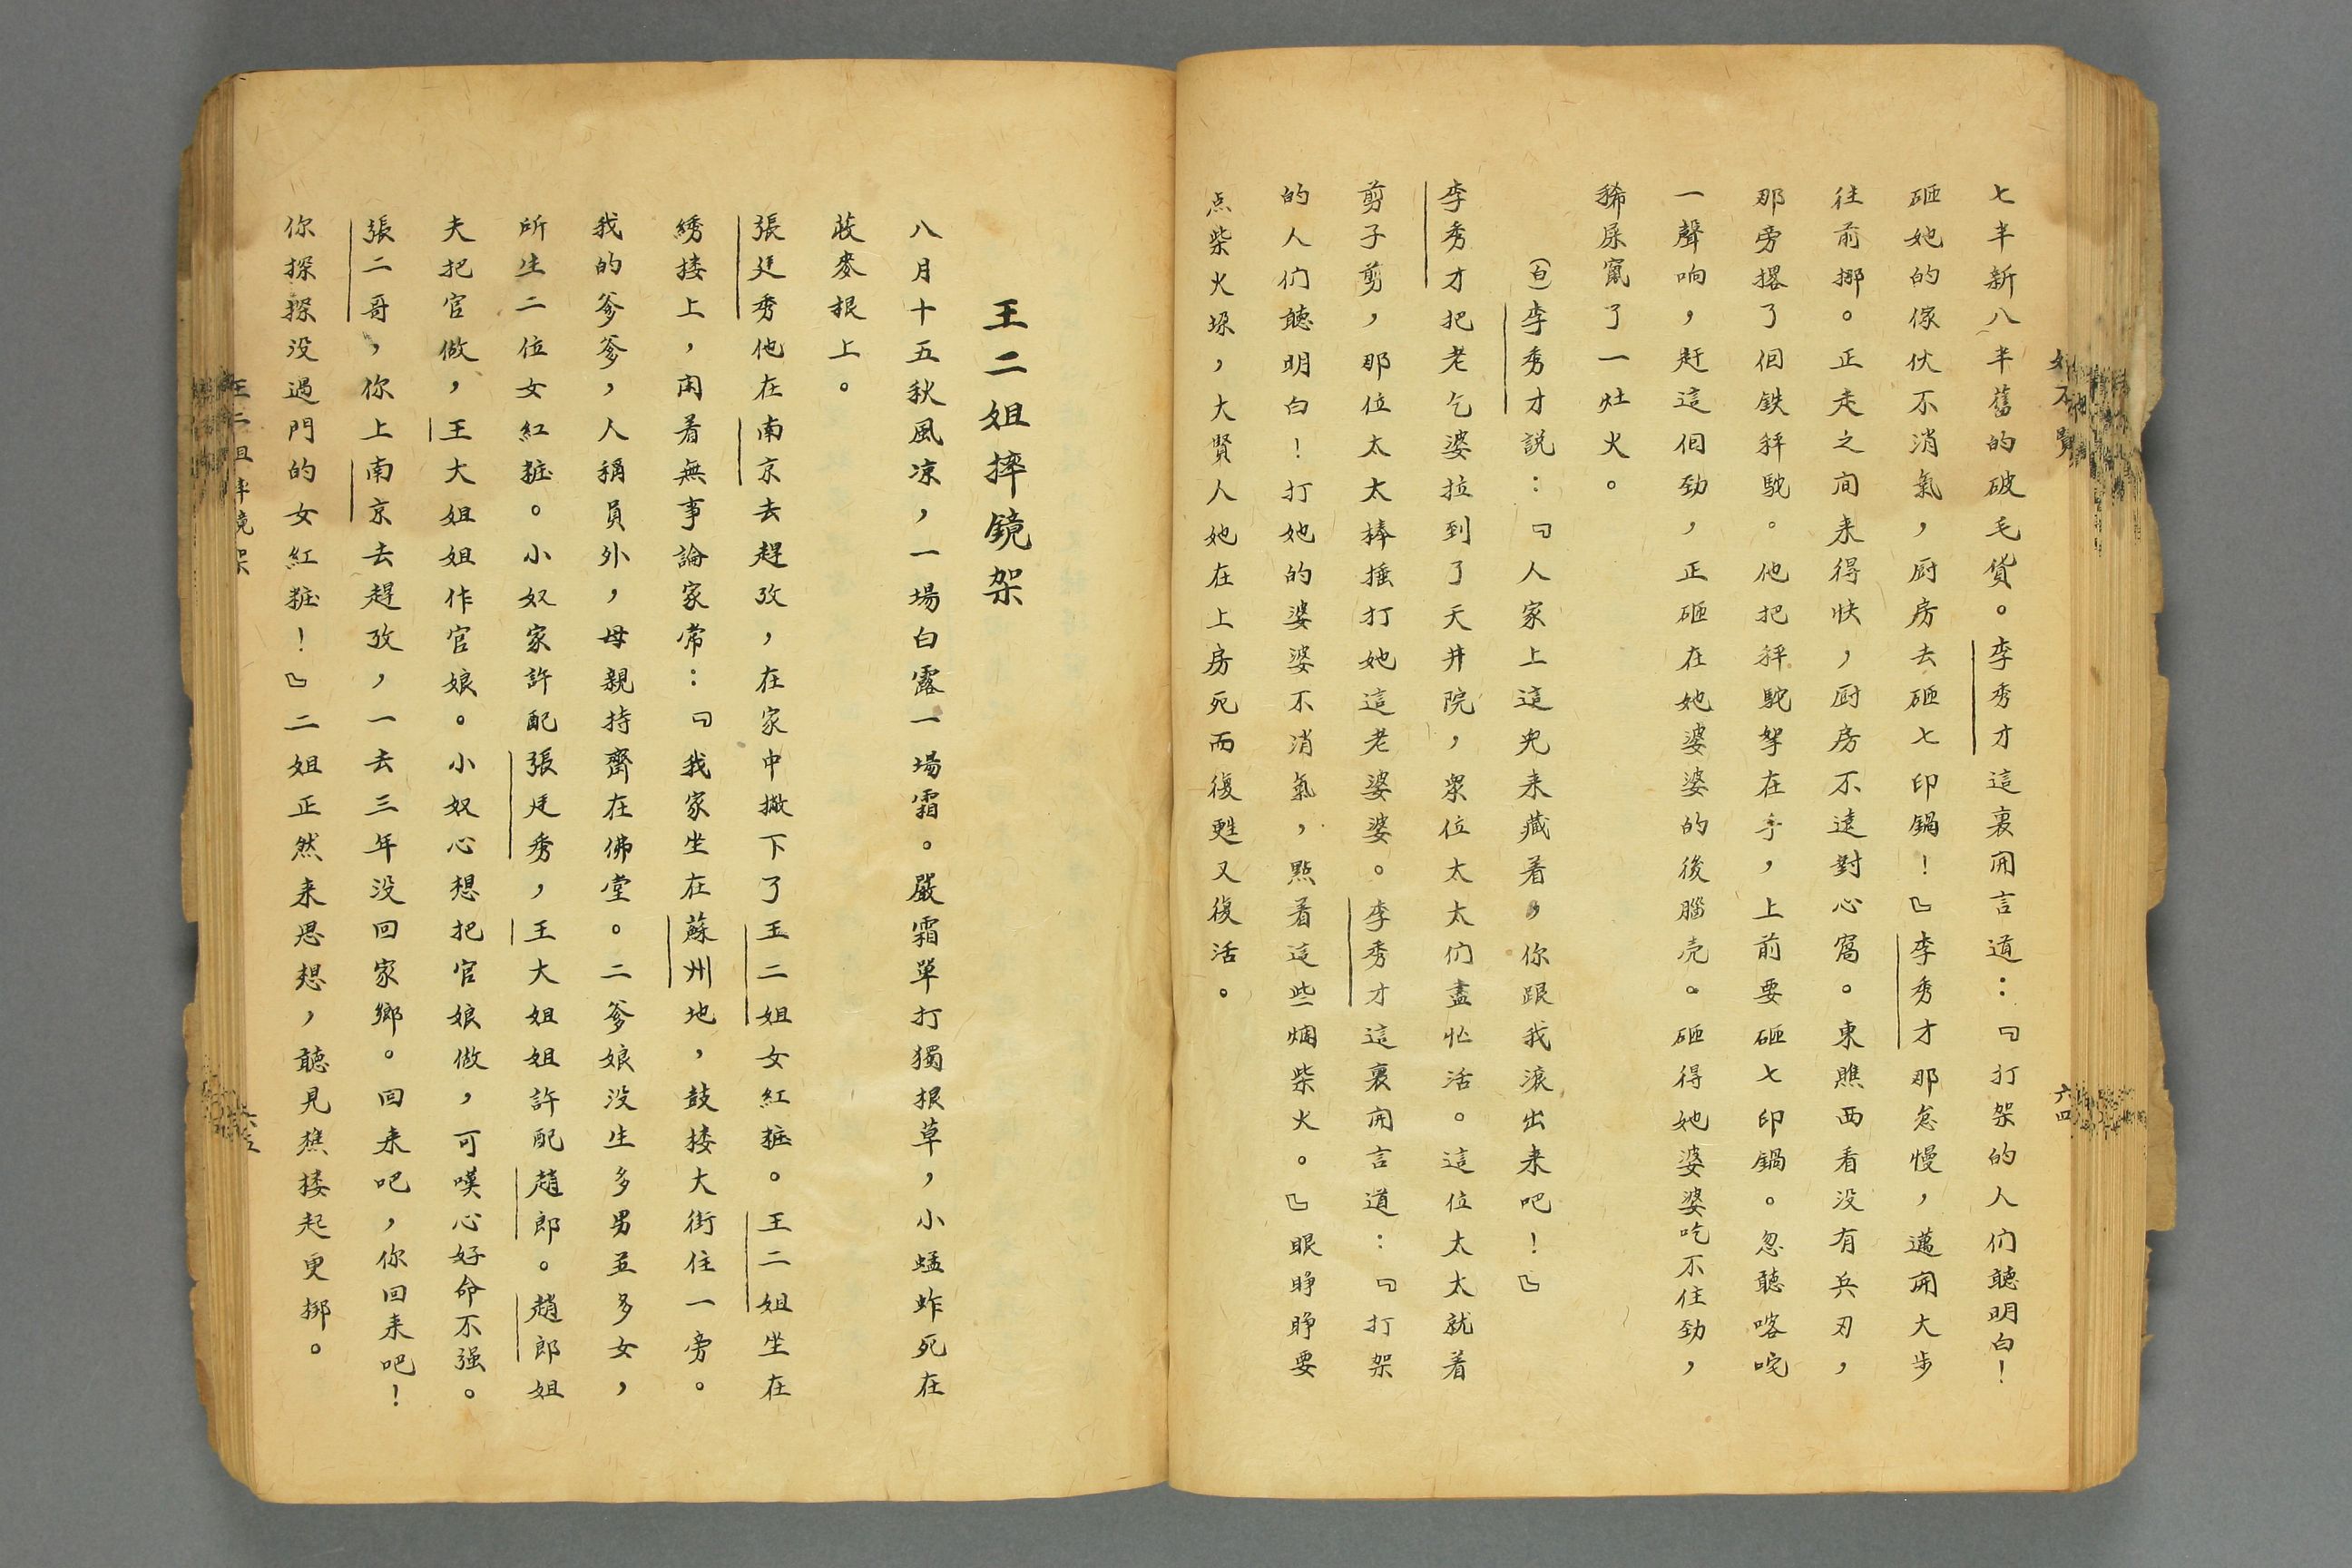 七半新八半舊的破毛貨。李秀才這裏開言道：『打架的人们聽明白！
砸她的傢伙不消氣，厨房去砸七印鍋！』李秀才那怠慢，邁開大步
往前挪。正走之间来得快，厨房不遠對心窩。東瞧西看没有兵刃，
那旁撂了個鉄秤駝。他把秤駝拏在手，上前要砸七印鍋。忽聽喀咤
一聲响，赶這個劲，正砸在她婆婆的後腦壳。砸得她婆婆吃不住劲，
稀屎竄了一灶火。
（白）李秀才説：『人家上這兒来藏着，你跟我滚出来吧！』
李秀才把老乞婆拉到了天井院，眾位太太们盡忙活。這位太太就着
剪子剪，那位太太棒捶打她這老婆婆。李秀才這裏開言道：『打架
的人们聽明白！打她的婆婆不消氣，點着這些爛柴火。』眼睁睁要
点柴火垜，大賢人她在上房死而復甦又復活。
六四
王二姐摔鏡架
八月十五秋風凉，一場白露一場霜。嚴霜單打獨根草，小蜢蚱死在
蓛麥根上。
張廷秀他在南京去趕攷，在家中撇下了王二姐女紅粧。王二姐坐在
綉搂上，闲着無事論家常：『我家坐在蘇州地，鼓搂大街住一旁。
我的爹爹，人稱員外，母親持齋在佛堂。二爹娘没生多男並多女，
所生二位女紅粧。小奴家許配張廷秀，王大姐姐許配趙郎。趙郎姐
夫把官做，王大姐姐作官娘。小奴心想把官娘做，可嘆心好命不强。
張二哥，你上南京去趕攷，一去三年没回家鄉。回来吧，你回来吧！
你探探没過門的女紅粧！』二姐正然来思想，聽見樵搂起更梆。
王二姐摔鏡架
六五